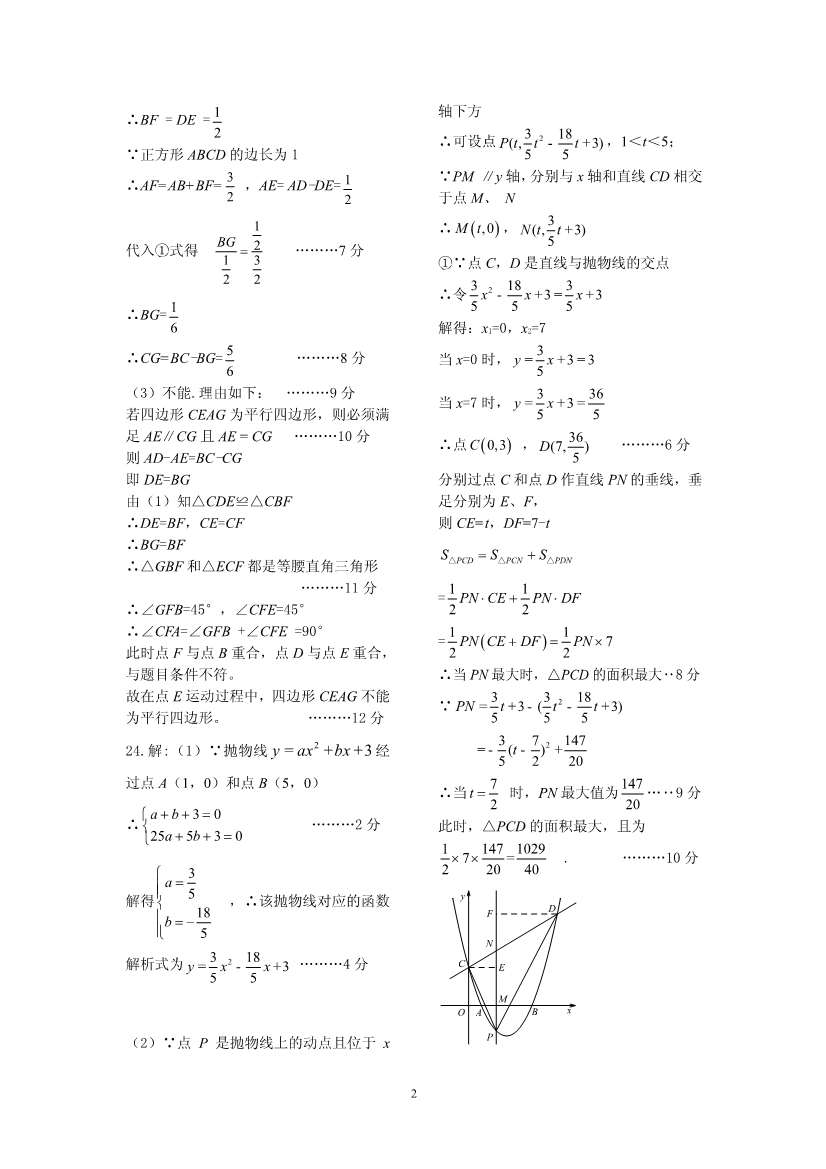 ∴BF = DE = 1/2
∵正方形 ABCD 的边长为 1
∴AF=AB+BF= 3/2 ，AE= AD-DE= 1/2
代入①式得 BG/(1/2) = (1/2)/(3/2) ………7 分
∴BG= 1/6
∴CG=BC-BG= 5/6 ………8 分
（3）不能.理由如下： ………9 分
若四边形 CEAG 为平行四边形，则必须满
足 AE∥CG 且 AE = CG ………10 分
则 AD-AE=BC-CG
即 DE=BG
由（1）知△CDE≌△CBF
∴DE=BF，CE=CF
∴BG=BF
∴△GBF 和△ECF 都是等腰直角三角形
………11 分
∴∠GFB=45°，∠CFE=45°
∴∠CFA=∠GFB +∠CFE =90°
此时点 F 与点 B 重合，点 D 与点 E 重合，
与题目条件不符。
故在点 E 运动过程中，四边形 CEAG 不能
为平行四边形。 ………12 分
24.解:（1）∵抛物线 y = ax² + bx + 3 经
过点 A（1，0）和点 B（5，0）
∴ { a + b + 3 = 0
25a + 5b + 3 = 0 ………2 分
解得 { a = 3/5
b = − 18/5 ，∴该抛物线对应的函数
解析式为 y = 3/5 x² - 18/5 x + 3 ………4 分
（2）∵点 P 是抛物线上的动点且位于 x
轴下方
∴可设点 P(t, 3/5 t² - 18/5 t + 3)，1＜t＜5；
∵PM ∥y 轴，分别与 x 轴和直线 CD 相交
于点 M、 N
∴ M (t,0)，N(t, 3/5 t + 3)
①∵点 C，D 是直线与抛物线的交点
∴令 3/5 x² - 18/5 x + 3 = 3/5 x + 3
解得：x₁=0，x₂=7
当 x=0 时， y = 3/5 x + 3 = 3
当 x=7 时， y = 3/5 x + 3 = 36/5
∴点 C (0,3) ，D(7, 36/5) ………6 分
分别过点 C 和点 D 作直线 PN 的垂线，垂
足分别为 E、F，
则 CE=t，DF=7-t
S△PCD = S△PCN + S△PDN
= 1/2 PN · CE + 1/2 PN · DF
= 1/2 PN (CE + DF) = 1/2 PN × 7
∴当 PN 最大时，△PCD 的面积最大‥8 分
∵ PN = 3/5 t + 3 - (3/5 t² - 18/5 t + 3)
= - 3/5 (t - 7/2)² + 147/20
∴当 t = 7/2 时，PN 最大值为 147/20 …‥9 分
此时，△PCD 的面积最大，且为
1/2 × 7 × 147/20 = 1029/40 . ………10 分
y
F
D
N
C
E
M
O
A
B
x
P
2